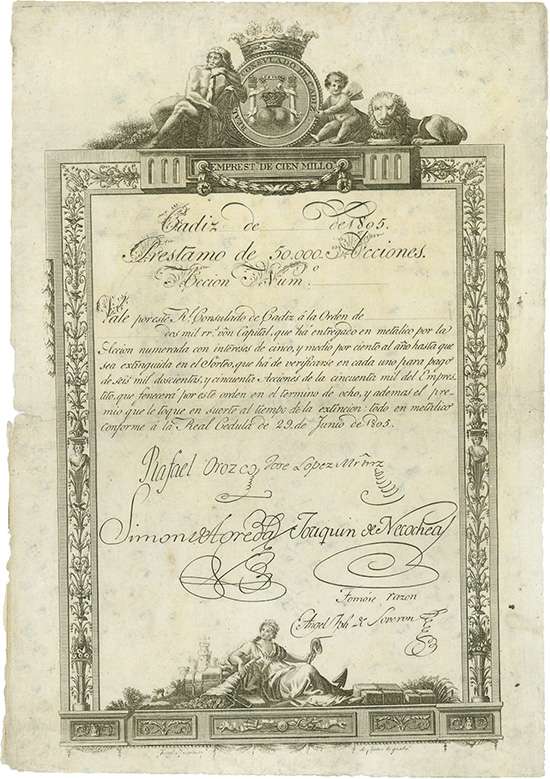 REAL CONSULADO DE CADIZ
EMPREST. DE CIEN MILLO.
Cadiz de de 1805.
Prestamo de 50.000 Acciones.
Accion Num.º
Vale por este R. Consulado de Cadiz á la Orden de
dos mil rr.s von Capital, que há entregado en metalico por la
Accion numerada con intereses de cinco, y medio por ciento al año hasta que
sea extinguida en el Sorteo, que há de verificarse en cada uno para pago
de seis mil doscientas, y cincuenta Acciones de la cincuenta mil del Empres-
tito, que fenecerá por este orden en el termino de ocho, y ademas el pre-
mio que le toque en suerte al tiempo de la extincion: todo en metalico
conforme á la Real Cedula de 29 de Junio de 1805.
Rafael Orozco Jose Lopez Mrnrz
Simon de Agreda Joaquin de Necochea
Tomose razon
Angel Jph. de Soveron